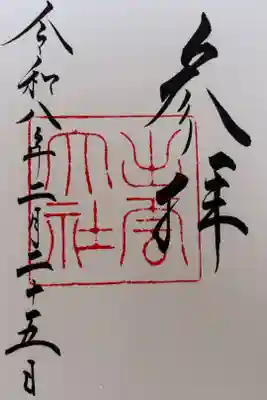 参拝
出雲大社
令和八年二月二十五日